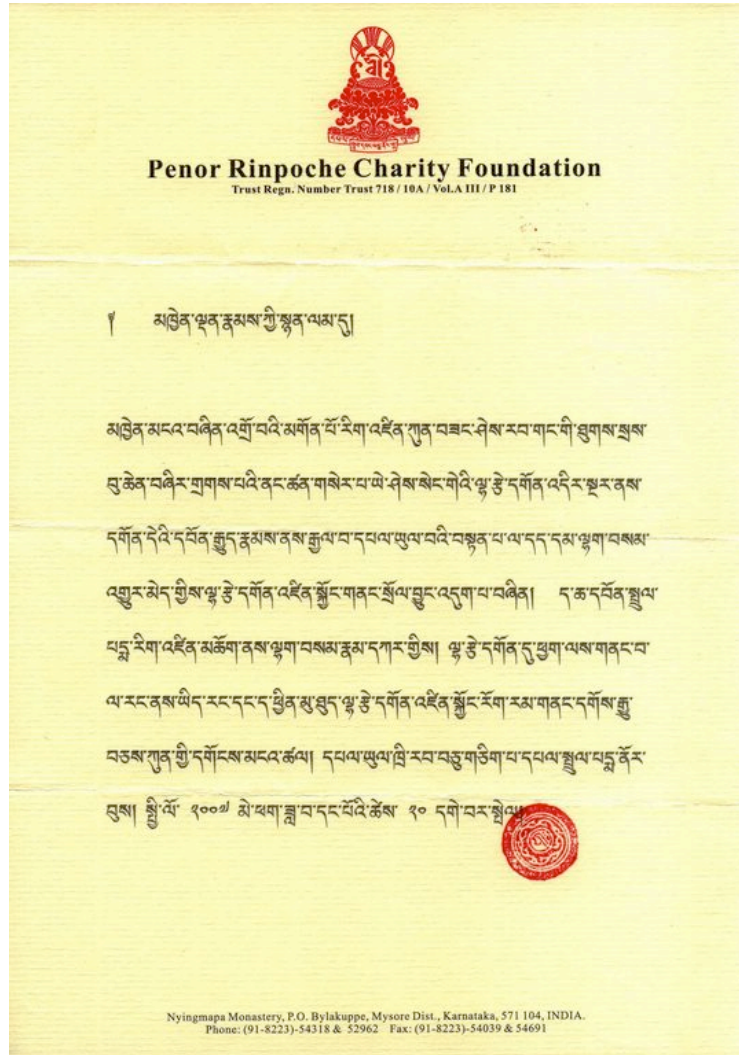 Penor Rinpoche Charity Foundation
Trust Regn. Number Trust 718 / 10A / Vol.A III / P 181
༈ མཁྱེན་ལྡན་རྣམས་ཀྱི་སྙན་ལམ་དུ།
མཁྱེན་མངའ་བཞིན་འགྲོ་བའི་མགོན་པོ་རིག་འཛིན་ཀུན་བཟང་ཤེས་རབ་གང་གི་ཐུགས་སྲས་
བུ་ཆེན་བཞིར་གྲགས་པའི་ནང་ཚན་གསེར་པ་ཡེ་ཤེས་སེང་གེའི་ལྷ་རྩེ་དགོན་འདིར་སྔར་ནས་
དགོན་དེའི་དབོན་རྒྱུད་རྣམས་ནས་རྒྱལ་བ་དཔལ་ཡུལ་བའི་བསྟན་པ་ལ་དད་དམ་ལྷག་བསམ་
འགྱུར་མེད་གྱིས་ལྷ་རྩེ་དགོན་འཛིན་སྐྱོང་གནང་སྲོལ་བྱུང་འདུག་པ་བཞིན། ད་ཆ་དབོན་སྤྲུལ་
པདྨ་རིག་འཛིན་མཆོག་ནས་ལྷག་བསམ་རྣམ་དཀར་གྱིས། ལྷ་རྩེ་དགོན་དུ་ཕྱག་ལས་གནང་བ་
ལ་རང་ནས་ཡིད་རང་དང་ད་ཕྱིན་མུ་མཐུད་ལྷ་རྩེ་དགོན་འཛིན་སྐྱོང་རོག་རམ་གནང་དགོས་རྒྱུ་
བཅས་ཀུན་གྱི་དགོངས་མངའ་ཚལ། དཔལ་ཡུལ་ཁྲི་རབ་བཅུ་གཅིག་པ་དཔལ་སྤྲུལ་པདྨ་ནོར་
བུས། སྤྱི་ལོ་ ༢༠༠༧ མེ་ཕག་ཟླ་བ་དང་པོའི་ཚེས་ ༢༠ དགེ་བར་སྤེལ།།
Nyingmapa Monastery, P.O. Bylakuppe, Mysore Dist., Karnataka, 571 104, INDIA.
Phone: (91-8223)-54318 & 52962 Fax: (91-8223)-54039 & 54691